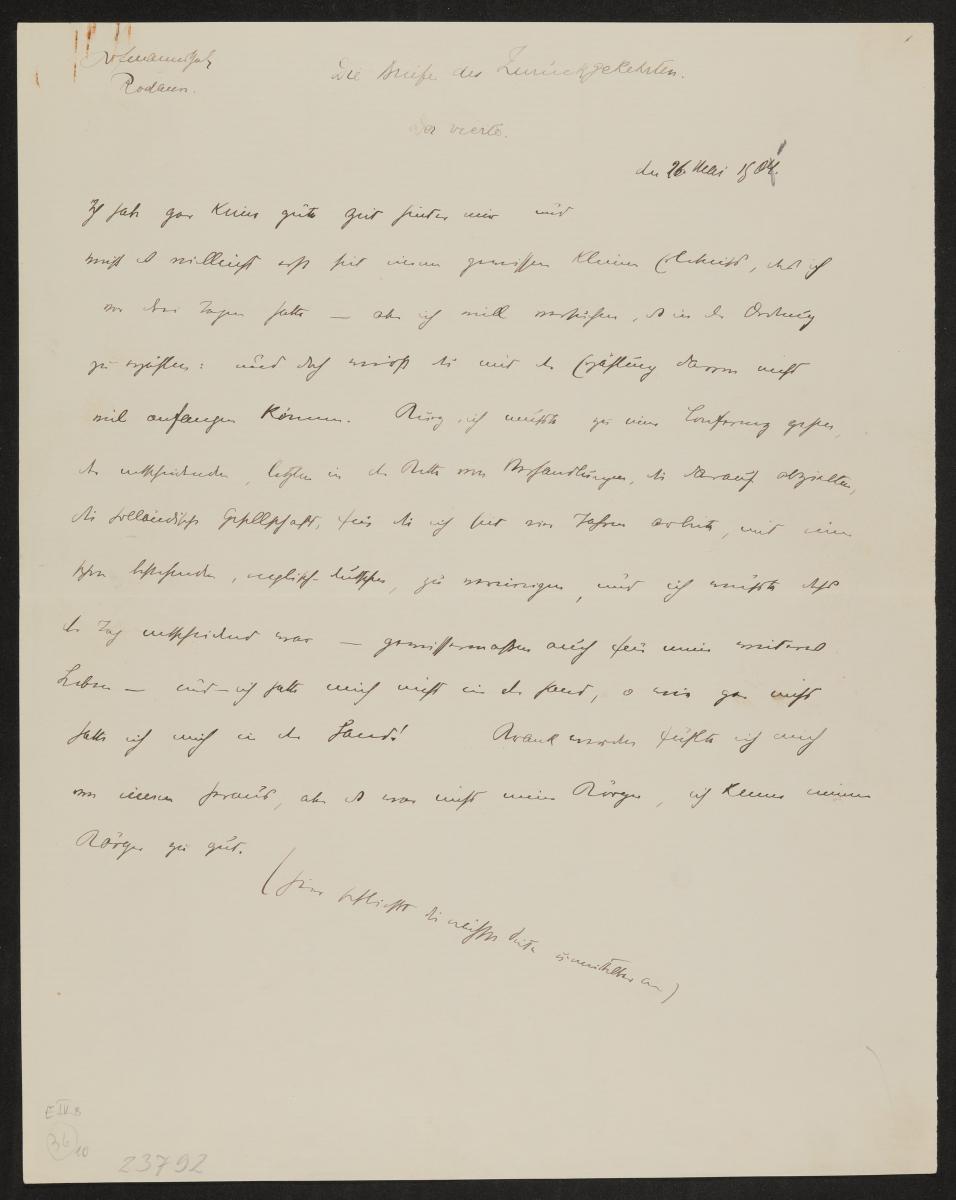 Hofmannsthal
Rodaun.
Die Briefe des Zurückgekehrten.
Der vierte.
den 26. Mai
Ich habe gar keine gute Zeit hinter mir und
weiß es vielleicht erst seit einem gewissen kleinen Erlebniss, das ich
vor drei Tagen hatte — aber ich will versuchen, es in der Ordnung
zu erzählen: und doch wirst du mit der Erzählung davon nicht
viel anfangen können. Kurz, ich mußte zu einer Conferenz gehen,
der entscheidenden, letzten in der Kette von Verhandlungen, die darauf abzielten,
die holländische Gesellschaft, für die ich seit vier Jahren arbeite, mit einer
schon bestehenden, englisch-deutschen, zu vereinigen, und ich wußte daß
der Tag entscheidend war — gewissermaßen auch für mein weiteres
Leben — und — ich hatte mich nicht in der Hand, o wie gar nicht
hatte ich mich in der Hand! Krank werden fühlte ich mich
von innen heraus, aber es war nicht mein Körper, ich kenne meinen
Körper zu gut.
(hier schließt die weiße Seite unmittelbar an)
E IV. B
36
10
23792